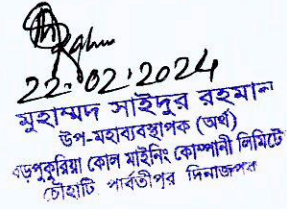 22.02.2024
মুহাম্মদ সাইদুর রহমান
উপ-মহাব্যবস্থাপক (অর্থ)
বড়পুকুরিয়া কোল মাইনিং কোম্পানী লিমিটে
চৌহাটি পার্বতীপুর দিনাজপুর